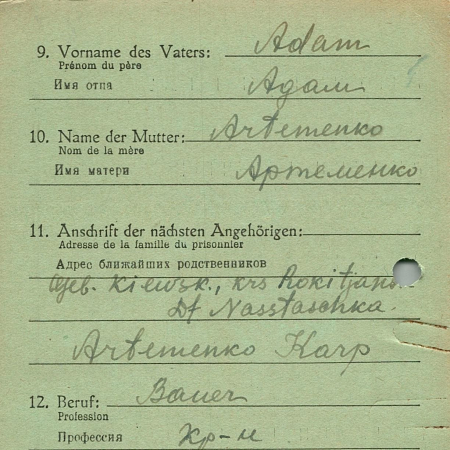 9. Vorname des Vaters: Adam
Prénom du père
Имя отца Адам
10. Name der Mutter: Artemenko
Nom de la mère
Имя матери Артеменко
11. Anschrift der nächsten Angehörigen:
Adresse de la famille du prisonnier
Адрес ближайших родственников
Geb. Kiewsk., krs Rokitjansk
Df Nasstaschka.
Artemenko Karp
12. Beruf: Bauer
Profession
Профессия кр-н